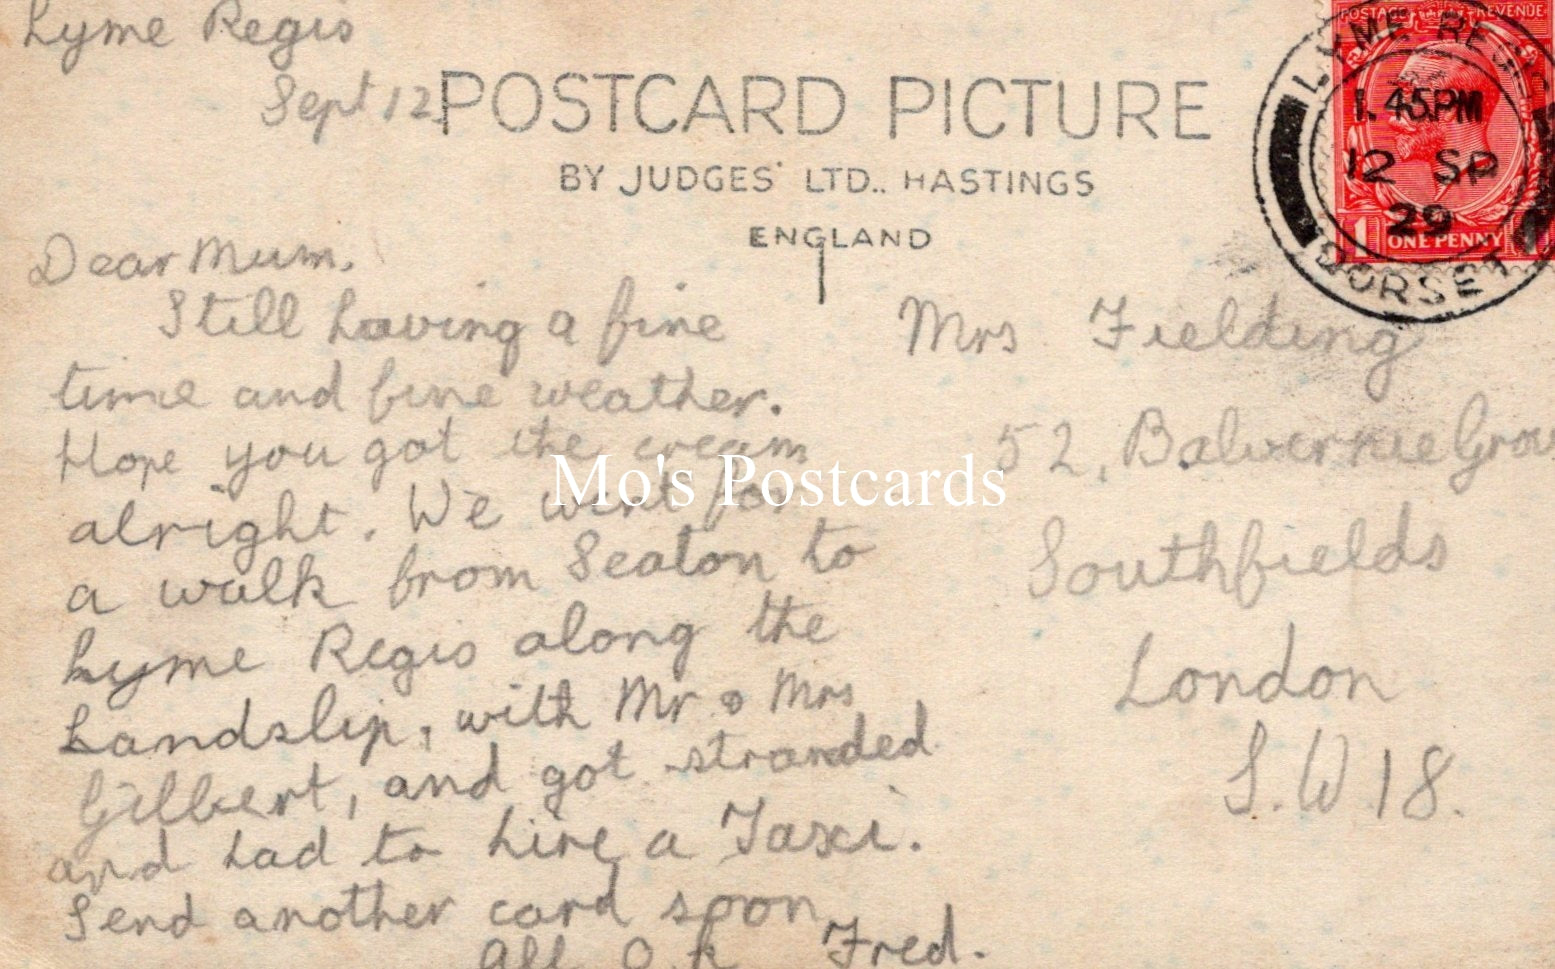 Lyme Regis
Sept 12.
POSTCARD PICTURE
BY JUDGES' LTD., HASTINGS
ENGLAND
POSTAGE REVENUE
LYME REGIS
1.45PM
12 SP
29
DORSET
1 ONE PENNY 1
Dear Mum.
Still having a fine
time and fine weather.
Hope you got the cream
alright. We went for
a walk from Seaton to
Lyme Regis along the
Landslip, with Mr & Mrs
Gilbert, and got stranded
and had to hire a Taxi.
Send another card soon
All O.K Fred.
Mrs Fielding
52, Balvernie Grov
Southfields
London
S.W.18.
Mo's Postcards